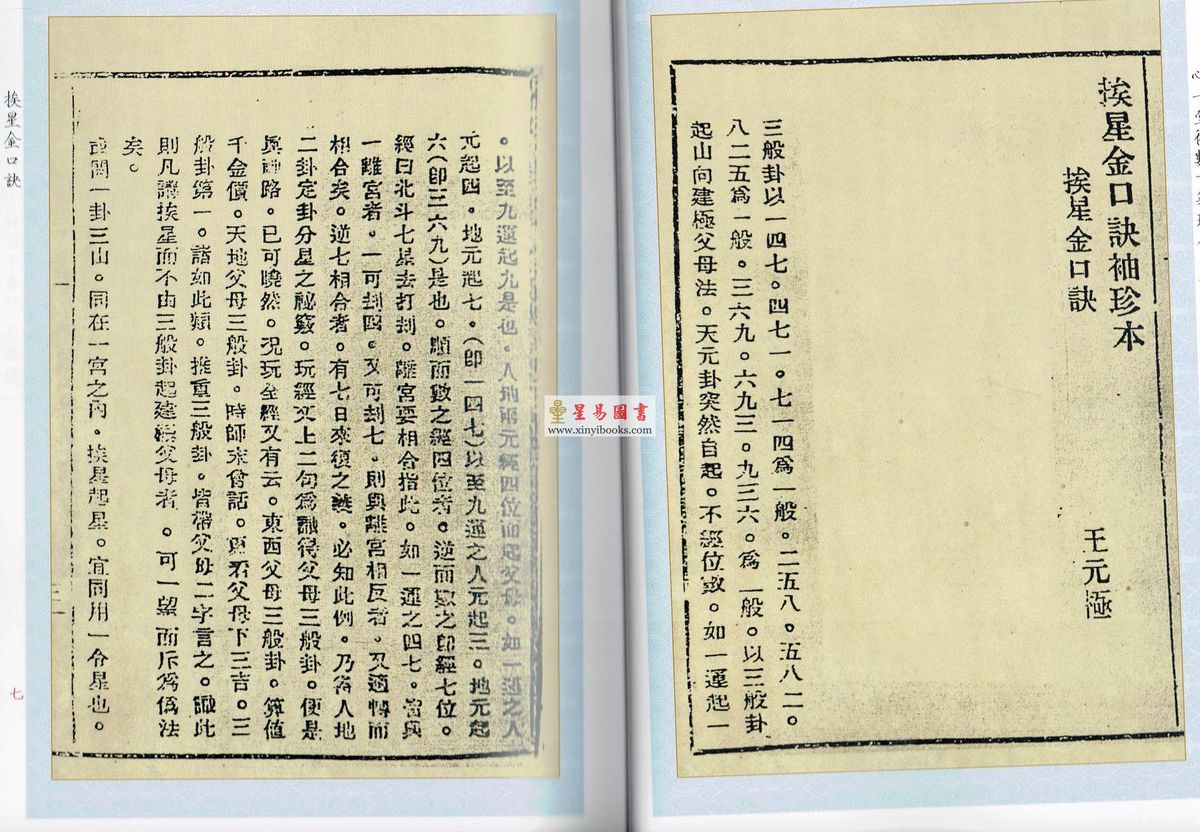 挨星金口訣袖珍本
挨星金口訣
王元極
三般卦以一四七。四七一。七一四為一般。二五八。五八二。
八二五為一般。三六九。六九三。九三六。為一般。以三般卦
起山向建極父母法。天元卦突然自起。不經位數。如一運起一
。以至九運起九是也。人地兩元經四位而起父母。如一運之人
元起四。地元起七。(即一四七)以至九運之人元起三。地元起
六(即三六九)是也。順而數之經四位者。逆而數之即經七位。
經曰北斗七星去打刦。離宮要相合指此。如一運之四七。皆與
一離宮者。一可刦四。又可刦七。則與離宮相反者。又適轉而
相合矣。逆七相合者。有七日來復之義。必知此例。乃為人地
二卦定卦分星之祕竅。玩經文上二句為識得父母三般卦。便是
眞神路。已可曉然。况玩全經又有云。東西父母三般卦。算值
千金價。天地父母三般卦。時師未曾話。更看父母下三吉。三
般卦第一。諸如此類。推重三般卦。皆帶父母二字言之。識此
則凡講挨星而不由三般卦起建極父母者。可一望而斥為偽法
矣。
或問一卦三山。同在一宮之內。挨星起星。宜同用一令星也。
挨星金口訣
一
七
星易圖書
www.xinyibooks.com